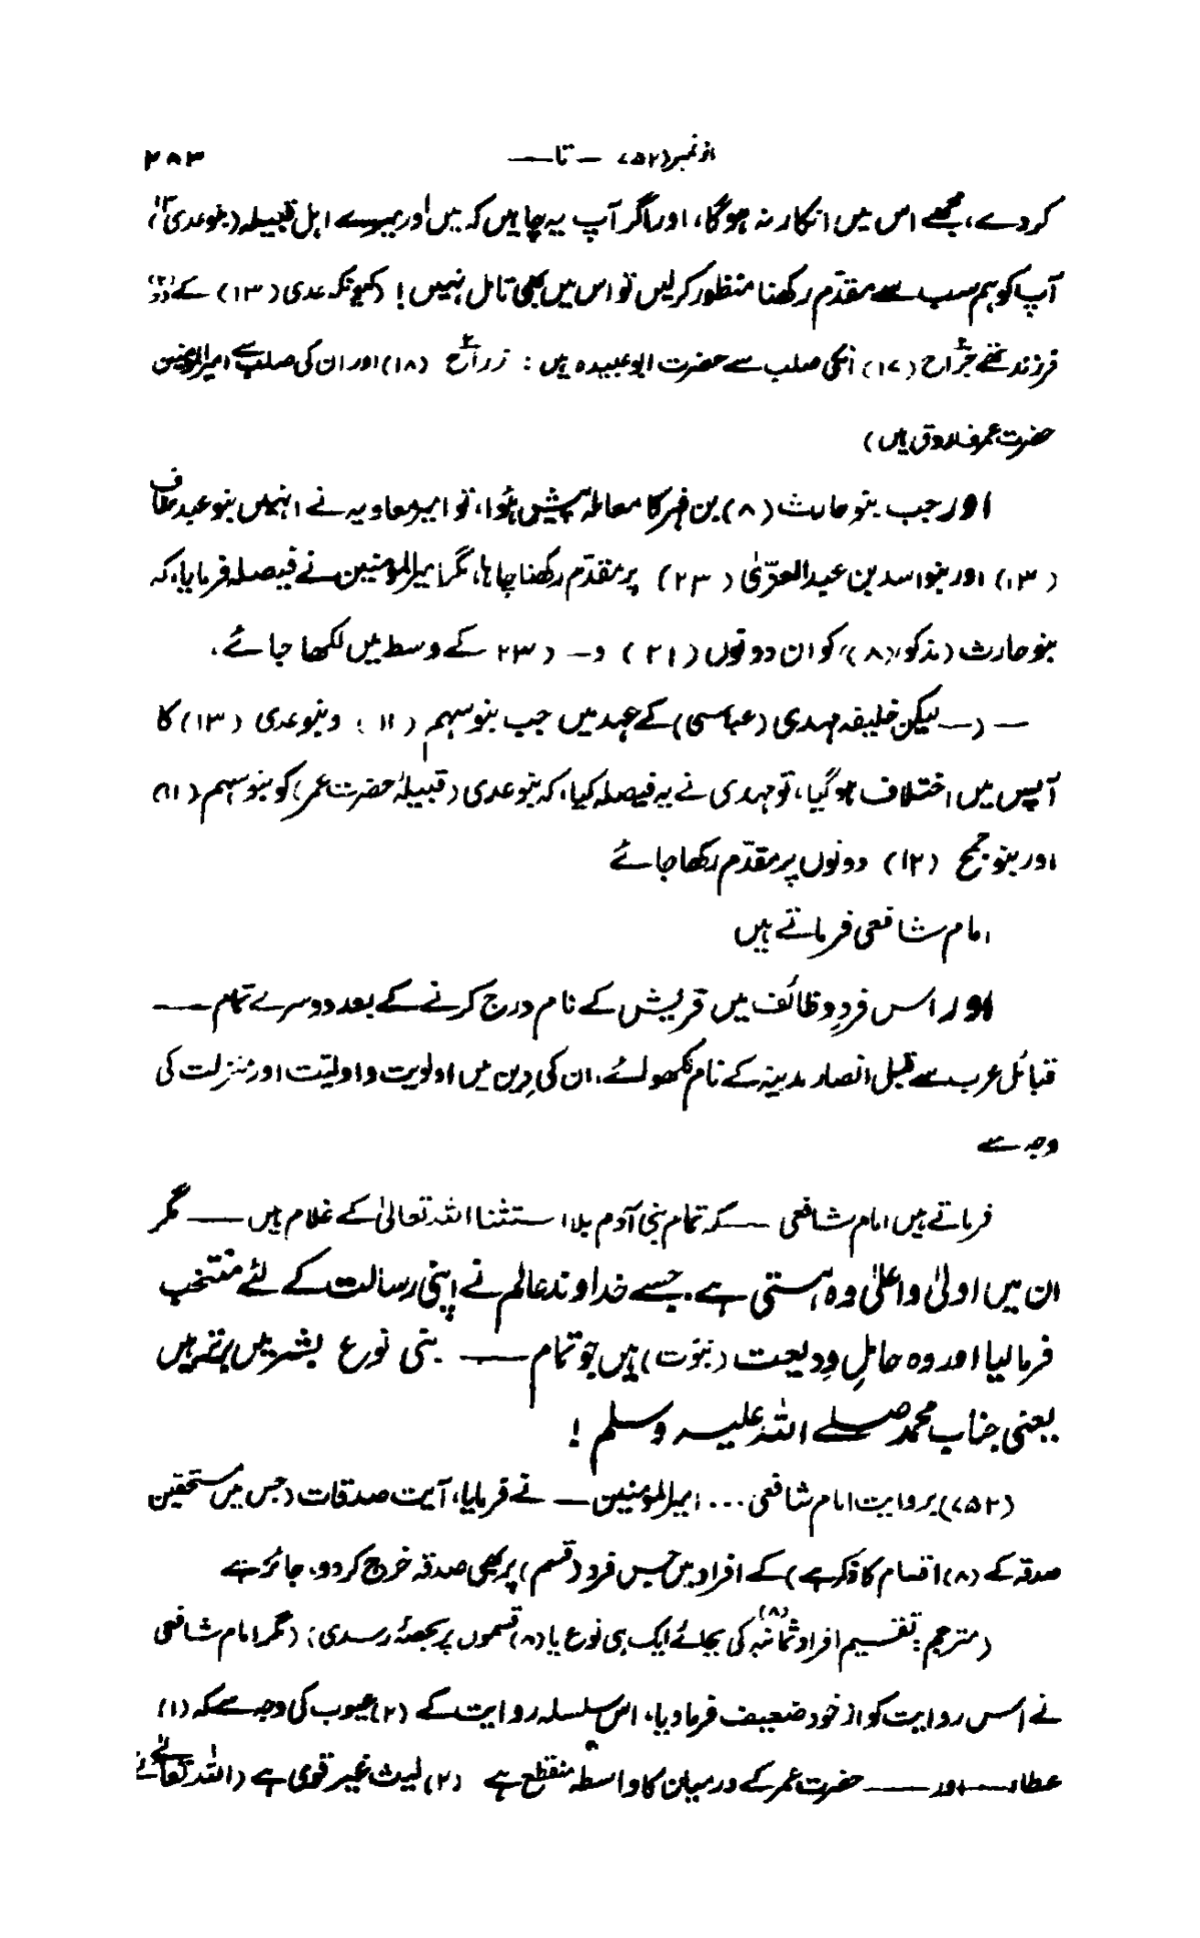 از نمبر (۷۵۲) — تا — ۲۸۳
کر دے، مجھے اس میں انکار نہ ہوگا، اور اگر آپ یہ چاہیں کہ میں اور میرے اہل قبیلہ (بنو عدی ۱۳)
آپ کو ہم سب سے مقدّم رکھنا منظور کر لیں تو اس میں بھی تامل نہیں! (کیونکہ عدی (۱۳) کے دو (۲)
فرزند تھے جراح (۱۷) انکی صلب سے حضرت ابو عبیدہ ہیں : زراح (۱۸) اور ان کی صلب سے امیر المومنین
حضرت عمر فاروق ہیں)
اور جب بنو حارث (۸) بن فہر کا معاملہ پیش ہُوا، تو امیر معاویہ نے انہیں بنو عبد مناف
(۱۳) اور بنو اسد بن عبد العزّیٰ (۲۳) پر مقدّم رکھنا چاہا، مگر امیر المومنین نے فیصلہ فرمایا، کہ
بنو حارث (مذکور (۸)) کو ان دونوں (۲۱) و – (۲۳ کے وسط میں لکھا جائے،
— (— لیکن خلیفہ مہدی (عباسی) کے عہد میں جب بنو سہم (۱۱) و بنو عدی (۱۳) کا
آپس میں اختلاف ہو گیا، تو مہدی نے یہ فیصلہ کیا، کہ بنو عدی (قبیلۂ حضرت عمر) کو بنو سہم (۱۱)
اور بنو جمح (۱۲) دونوں پر مقدّم رکھا جائے
امام شافعی فرماتے ہیں
اور اس فردِ وظائف میں قریش کے نام درج کرنے کے بعد دوسرے تمام —
قبائل عرب سے قبل انصار مدینہ کے نام لکھو لئے، ان کی دِین میں اولویت و اولیّت اور منزلت کی
وجہ سے
فرماتے ہیں امام شافعی — کہ تمام بنی آدم بلا استثنا اللہ تعالیٰ کے غلام ہیں — مگر
ان میں اولیٰ و اعلیٰ وہ ہستی ہے. جسے خداوند عالم نے اپنی رسالت کے لئے منتخب
فرمالیا اور وہ حاملِ ودیعت (نبوّت) ہیں جو تمام — بنی نوع بشر میں برتر ہیں
یعنی جناب محمد صلے اللہ علیہ وسلم !
(۷۵۲) بروایت امام شافعی ... امیر المومنین — نے فرمایا، آیت صدقات (جس میں مستحقین
صدقہ کے (۸) اقسام کا ذکر ہے) کے افراد میں جس فرد (قسم) پر بھی صدقہ خرچ کر دو، جائز ہے
(مترجم: تقسیم افراد ثمانیہ (۸) کی بجائے ایک ہی نوع یا (۸) قسموں پر بحصۂ رسدی) (مگر امام شافعی
نے اس روایت کو از خود ضعیف فرما دیا، اس سلسلہ روایت کے (۲) عیوب کی وجہ سے کہ (۱)
عطاء — اور — حضرت عمر کے درمیان کا واسطہ منقطع ہے (۲) لیث غیر قوی ہے (اللہ تعالےٰ